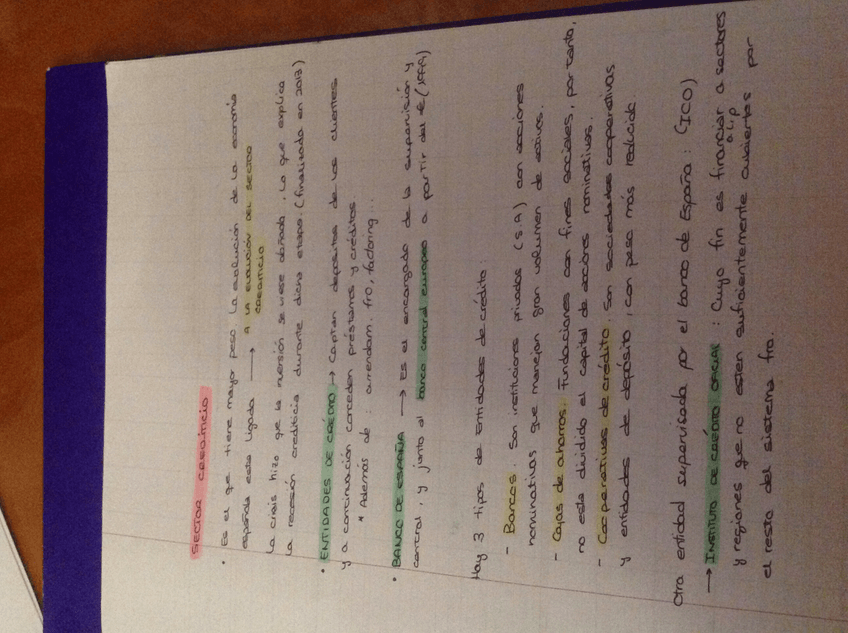 SECTOR CREDITICIO
• Es el que tiene mayor peso. La evolución de la economía
española esta ligada → A LA EVOLUCIÓN DEL SECTOR
CREDITICIO
La crisis hizo que la inversión se viese dañada. Lo que explica
la recesión crediticia durante dicha etapa. (finalizada en 2013)
• ENTIDADES DE CRÉDITO → Captan depósitos de los clientes
y a continuación conceden préstamos y créditos
* Además de : arrendam. fro, factoring...
• BANCO DE ESPAÑA → Es el encargado de la supervisión y
control, y junto al banco central europeo a partir del € (1999)
Hay 3 tipos de entidades de crédito:
- Bancos. Son instituciones privadas (S.A) con acciones
nominativas que manejan gran volumen de activos.
- Cajas de ahorros. Fundaciones con fines sociales, por tanto,
no esta dividido el capital de acciones nominativas.
- Cooperativas de crédito. Son sociedades cooperativas
y entidades de depósito, con peso más reducido.
Otra entidad supervisada por el banco de España: (ICO)
→ INSTITUTO DE CRÉDITO OFICIAL : Cuyo fin es financiar a sectores
a L/p
y regiones que no esten suficientemente cubiertas por
el resto del sistema fro.